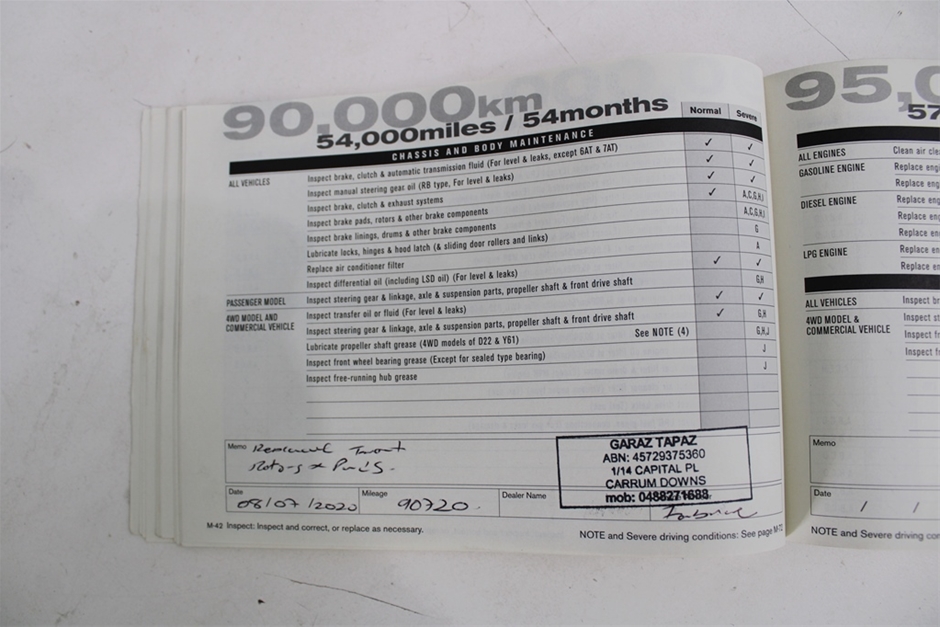 90,000km
54,000miles / 54months
Normal Severe
CHASSIS AND BODY MAINTENANCE
ALL VEHICLES Inspect brake, clutch & automatic transmission fluid (For level & leaks, except 6AT & 7AT) ✓ ✓
Inspect manual steering gear oil (RB type, For level & leaks) ✓ ✓
Inspect brake, clutch & exhaust systems ✓ ✓
Inspect brake pads, rotors & other brake components ✓ A,C,G,H,I
Inspect brake linings, drums & other brake components A,C,G,H,I
Lubricate locks, hinges & hood latch (& sliding door rollers and links) G
Replace air conditioner filter A
Inspect differential oil (including LSD oil) (For level & leaks) ✓ ✓
PASSENGER MODEL Inspect steering gear & linkage, axle & suspension parts, propeller shaft & front drive shaft G,H
4WD MODEL AND COMMERCIAL VEHICLE Inspect transfer oil or fluid (For level & leaks) ✓ ✓
Inspect steering gear & linkage, axle & suspension parts, propeller shaft & front drive shaft ✓ G,H
Lubricate propeller shaft grease (4WD models of D22 & Y61) See NOTE (4) G,H,J
Inspect front wheel bearing grease (Except for sealed type bearing) J
Inspect free-running hub grease J
Memo Replaced Front
Rotors & Pads.
GARAZ TAPAZ
ABN: 45729375360
1/14 CAPITAL PL
CARRUM DOWNS
mob: 0488271688
Date 08/07/2020 Mileage 90720 Dealer Name
M-42 Inspect: Inspect and correct, or replace as necessary.
NOTE and Severe driving conditions: See page M-72
95,0
57
ALL ENGINES Clean air cle
GASOLINE ENGINE Replace eng
Replace eng
DIESEL ENGINE Replace eng
Replace eng
Replace eng
LPG ENGINE Replace eng
Replace en
ALL VEHICLES Inspect br
4WD MODEL & COMMERCIAL VEHICLE Inspect st
Inspect fr
Inspect fr
Memo
Date / /
NOTE and Severe driving con